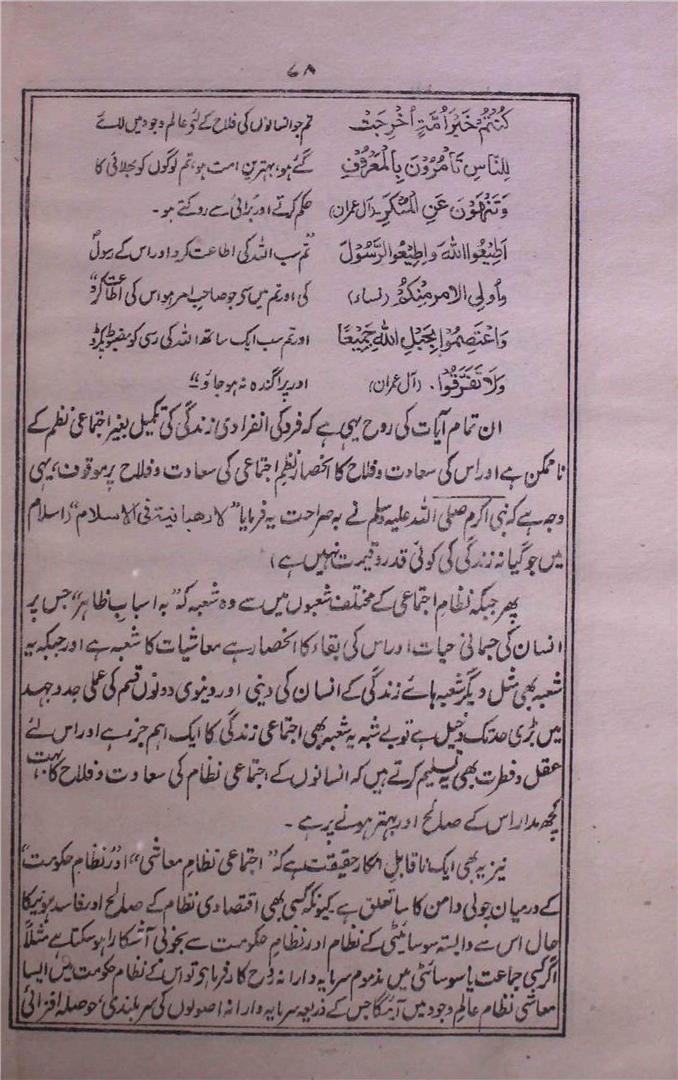 ۶۸
كُنْتُمْ خَيْرَ اُمَّةٍ اُخْرِجَتْ تم جو انسانوں کی فلاح کے لئے عالم وجود میں لائے
لِلنَّاسِ تَأْمُرُوْنَ بِالْمَعْرُوْفِ گئے ہو، بہترین امت ہو، تم لوگوں کو بھلائی کا
وَتَنْهَوْنَ عَنِ الْمُنْكَرِ (آل عمران) حکم کرتے اور برائی سے روکتے ہو۔
اَطِيْعُوا اللهَ وَاَطِيْعُوا الرَّسُوْلَ "تم سب اللہ کی اطاعت کرو اور اس کے رسول
وَاُولِي الْاَمْرِ مِنْكُمْ (نساء) کی اور تم میں سے جو صاحب امر ہو اس کی اطاعت کرو"
وَاعْتَصِمُوْا بِحَبْلِ اللهِ جَمِيْعًا اور تم سب ایک ساتھ اللہ کی رسی کو مضبوط پکڑو
وَلَا تَفَرَّقُوْا. (آل عمران) اور پراگندہ نہ ہو جاؤ"
ان تمام آیات کی روح یہی ہے کہ فرد کی انفرادی زندگی کی تکمیل بغیر اجتماعی نظم کے
ناممکن ہے اور اس کی سعادت و فلاح کا انحصار نظم اجتماعی کی سعادت و فلاح پر موقوف، یہی
وجہ ہے کہ نبی اکرم صلی اللہ علیہ وسلم نے بہ صراحت یہ فرمایا "لا رهبانية في الاسلام" (اسلام
میں جوگیانہ زندگی کی کوئی قدر و قیمت نہیں ہے)
پھر جبکہ نظام اجتماعی کے مختلف شعبوں میں سے وہ شعبہ کہ "بہ اسباب ظاہر" جس پر
انسان کی جسمانی حیات اور اس کی بقاء کا انحصار ہے معاشیات کا شعبہ ہے اور جبکہ یہ
شعبہ بھی مثل دیگر شعبہ ہائے زندگی کے انسان کی دینی اور دنیوی دونوں قسم کی عملی جدوجہد
میں بڑی حد تک دخیل ہے تو بے شبہ یہ شعبہ بھی اجتماعی زندگی کا ایک اہم جز ہے اور اس لئے
عقل و فطرت بھی یہ تسلیم کرتے ہیں کہ انسانوں کے اجتماعی نظام کی سعادت و فلاح کا بہت
کچھ مدار اس کے صالح اور بہتر ہونے پر ہے۔
نیز یہ بھی ایک ناقابل انکار حقیقت ہے کہ "اجتماعی نظام معاشی" اور "نظام حکومت"
کے درمیان چولی دامن کا سا تعلق ہے کیونکہ کسی بھی اقتصادی نظام کے صالح اور فاسد ہونیکا
حال اس سے وابستہ سوسائٹی کے نظام اور نظام حکومت سے بخوبی آشکارا ہو سکتا ہے مثلاً
اگر کسی جماعت یا سوسائٹی میں مذموم سرمایہ دارانہ روح کارفرما ہو تو اس کے نظام حکومت میں ایسا
معاشی نظام عالم وجود میں آئیگا جس کے ذریعہ سرمایہ دارانہ اصولوں کی سربلندی، حوصلہ افزائی